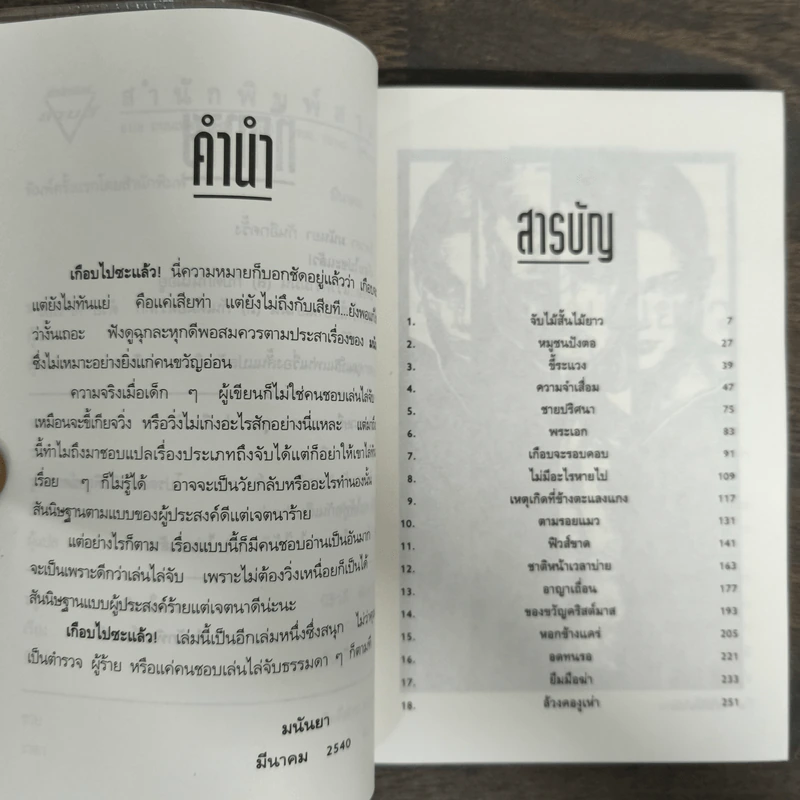 คำนำ
เกือบไปซะแล้ว! นี่ความหมายก็บอกชัดอยู่แล้วว่า
แต่ยังไม่ทันแย่ คือแค่เสียท่า แต่ยังไม่ถึงกับเสียที...
ว่างั้นเถอะ ฟังดูฉุกละหุกดีพอสมควรตามประสาเรื่องของ
ซึ่งไม่เหมาะอย่างยิ่งแก่คนขวัญอ่อน
ความจริงเมื่อเด็ก ๆ ผู้เขียนก็ไม่ใช่คนชอบเล่นไล่จับ
เหมือนจะขี้เกียจวิ่ง หรือวิ่งไม่เก่งอะไรสักอย่างนี่แหละ
นี้ทำไมถึงมาชอบแปลเรื่องประเภทถึงจับได้แต่ก็อย่าให้เขาไล่
เรื่อย ๆ ก็ไม่รู้ได้ อาจจะเป็นวัยกลับหรืออะไรทำนองนั้น
สันนิษฐานตามแบบของผู้ประสงค์ดีแต่เจตนาร้าย
แต่อย่างไรก็ตาม เรื่องแบบนี้ก็มีคนชอบอ่านเป็นอันมาก
จะเป็นเพราะดีกว่าเล่นไล่จับ เพราะไม่ต้องวิ่งเหนื่อยก็เป็นได้
สันนิษฐานแบบผู้ประสงค์ร้ายแต่เจตนาดีน่ะนะ
เกือบไปซะแล้ว! เล่มนี้เป็นอีกเล่มหนึ่งซึ่งสนุก
เป็นตำรวจ ผู้ร้าย หรือแค่คนชอบเล่นไล่จับธรรมดา ๆ ก็ตามที
มนันยา
มีนาคม 2540
สารบัญ
1. จับไม้สั้นไม้ยาว 7
2. หมูชนปังตอ 27
3. ขี้ระแวง 39
4. ความจำเสื่อม 47
5. ชายปริศนา 75
6. พระเอก 83
7. เกือบจะรอบคอบ 91
8. ไม่มีอะไรหายไป 109
9. เหตุเกิดที่ข้างตะแลงแกง 117
10. ตามรอยแมว 131
11. ฟิวส์ขาด 141
12. ชาติหน้าเวลาบ่าย 163
13. อาญาเถื่อน 177
14. ของขวัญคริสต์มาส 193
15. หอกข้างแคร่ 205
16. อดทนรอ 221
17. ยืมมือฆ่า 233
18. ล้วงคองูเห่า 251